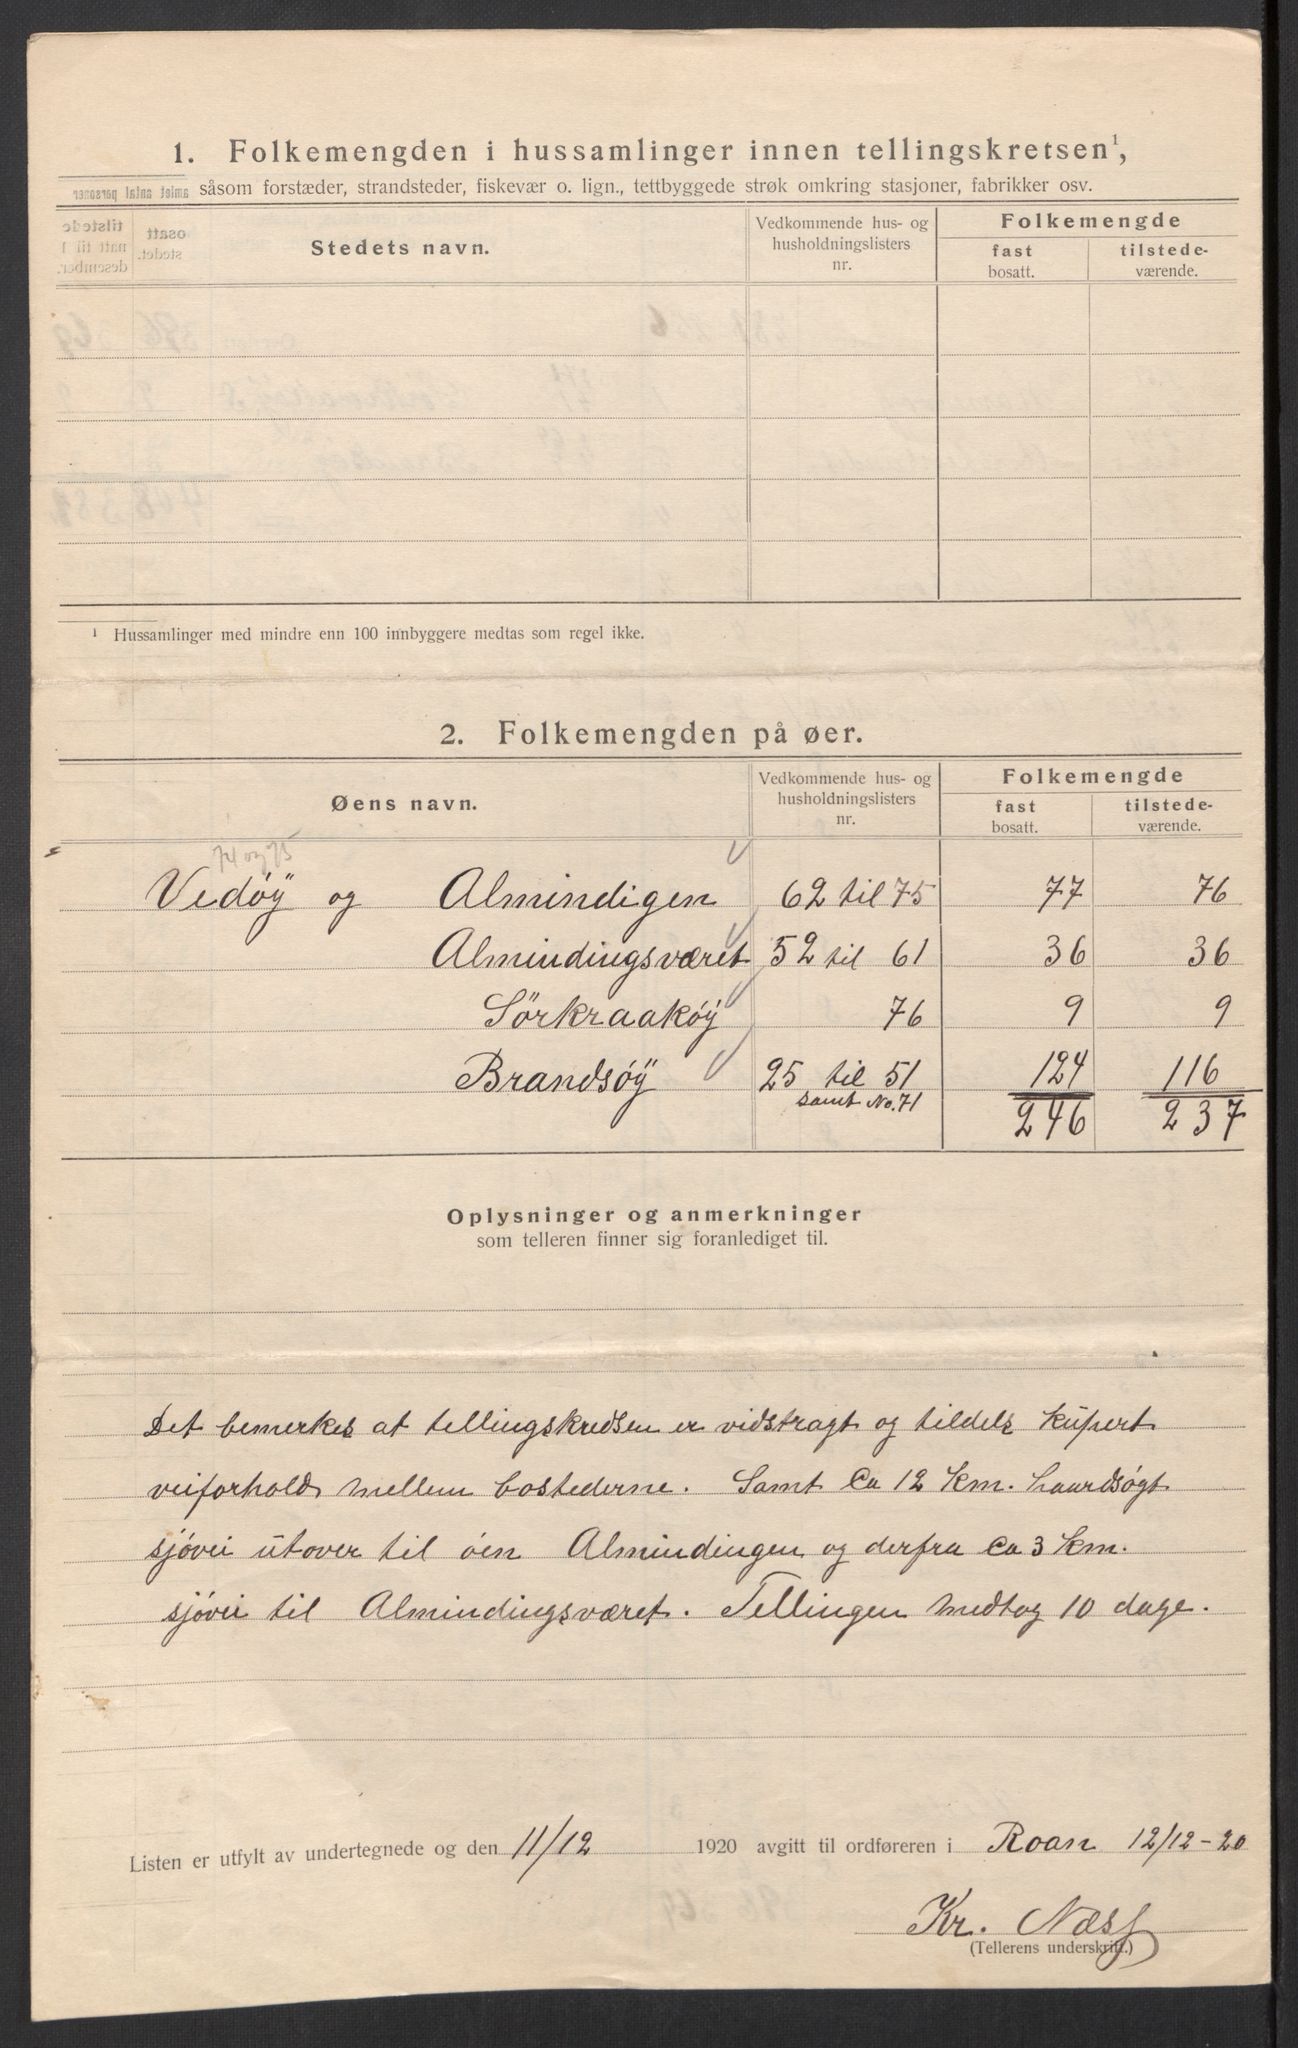 1. Folkemengden i hussamlinger innen tellingskretsen¹,
såsom forstæder, strandsteder, fiskevær o. lign., tettbyggede strøk omkring stasjoner, fabrikker osv.
Stedets navn.
Vedkommende hus- og
husholdningslisters
nr.
Folkemengde
fast
bosatt.
tilstede-
værende.
¹ Hussamlinger med mindre enn 100 innbyggere medtas som regel ikke.
2. Folkemengden på øer.
Øens navn.
Vedkommende hus- og
husholdningslisters
nr.
Folkemengde
fast
bosatt.
tilstede-
værende.
74 og 75
Vedøy og Almindigen 62 til 75 77 76
Almindingsværet 52 til 61 36 36
Sörkraakøy 76 9 9
Brandsøy 25 til 51 124 116
samt No. 71
246 237
Oplysninger og anmerkninger
som telleren finner sig foranlediget til.
Det bemerkes at tellingskredsen er vidstragt og tildels kupert
veiforhold mellem bostederne. Samt ca 12 km. haardsøgt
sjøvei utover til øen Almindingen og derfra ca 3 km.
sjøvei til Almindingsværet. Tellingen medtog 10 dage.
Listen er utfylt av undertegnede og den 11/12 1920 avgitt til ordføreren i Roan 12/12-20
Kr. Næss
(Tellerens underskrift.)